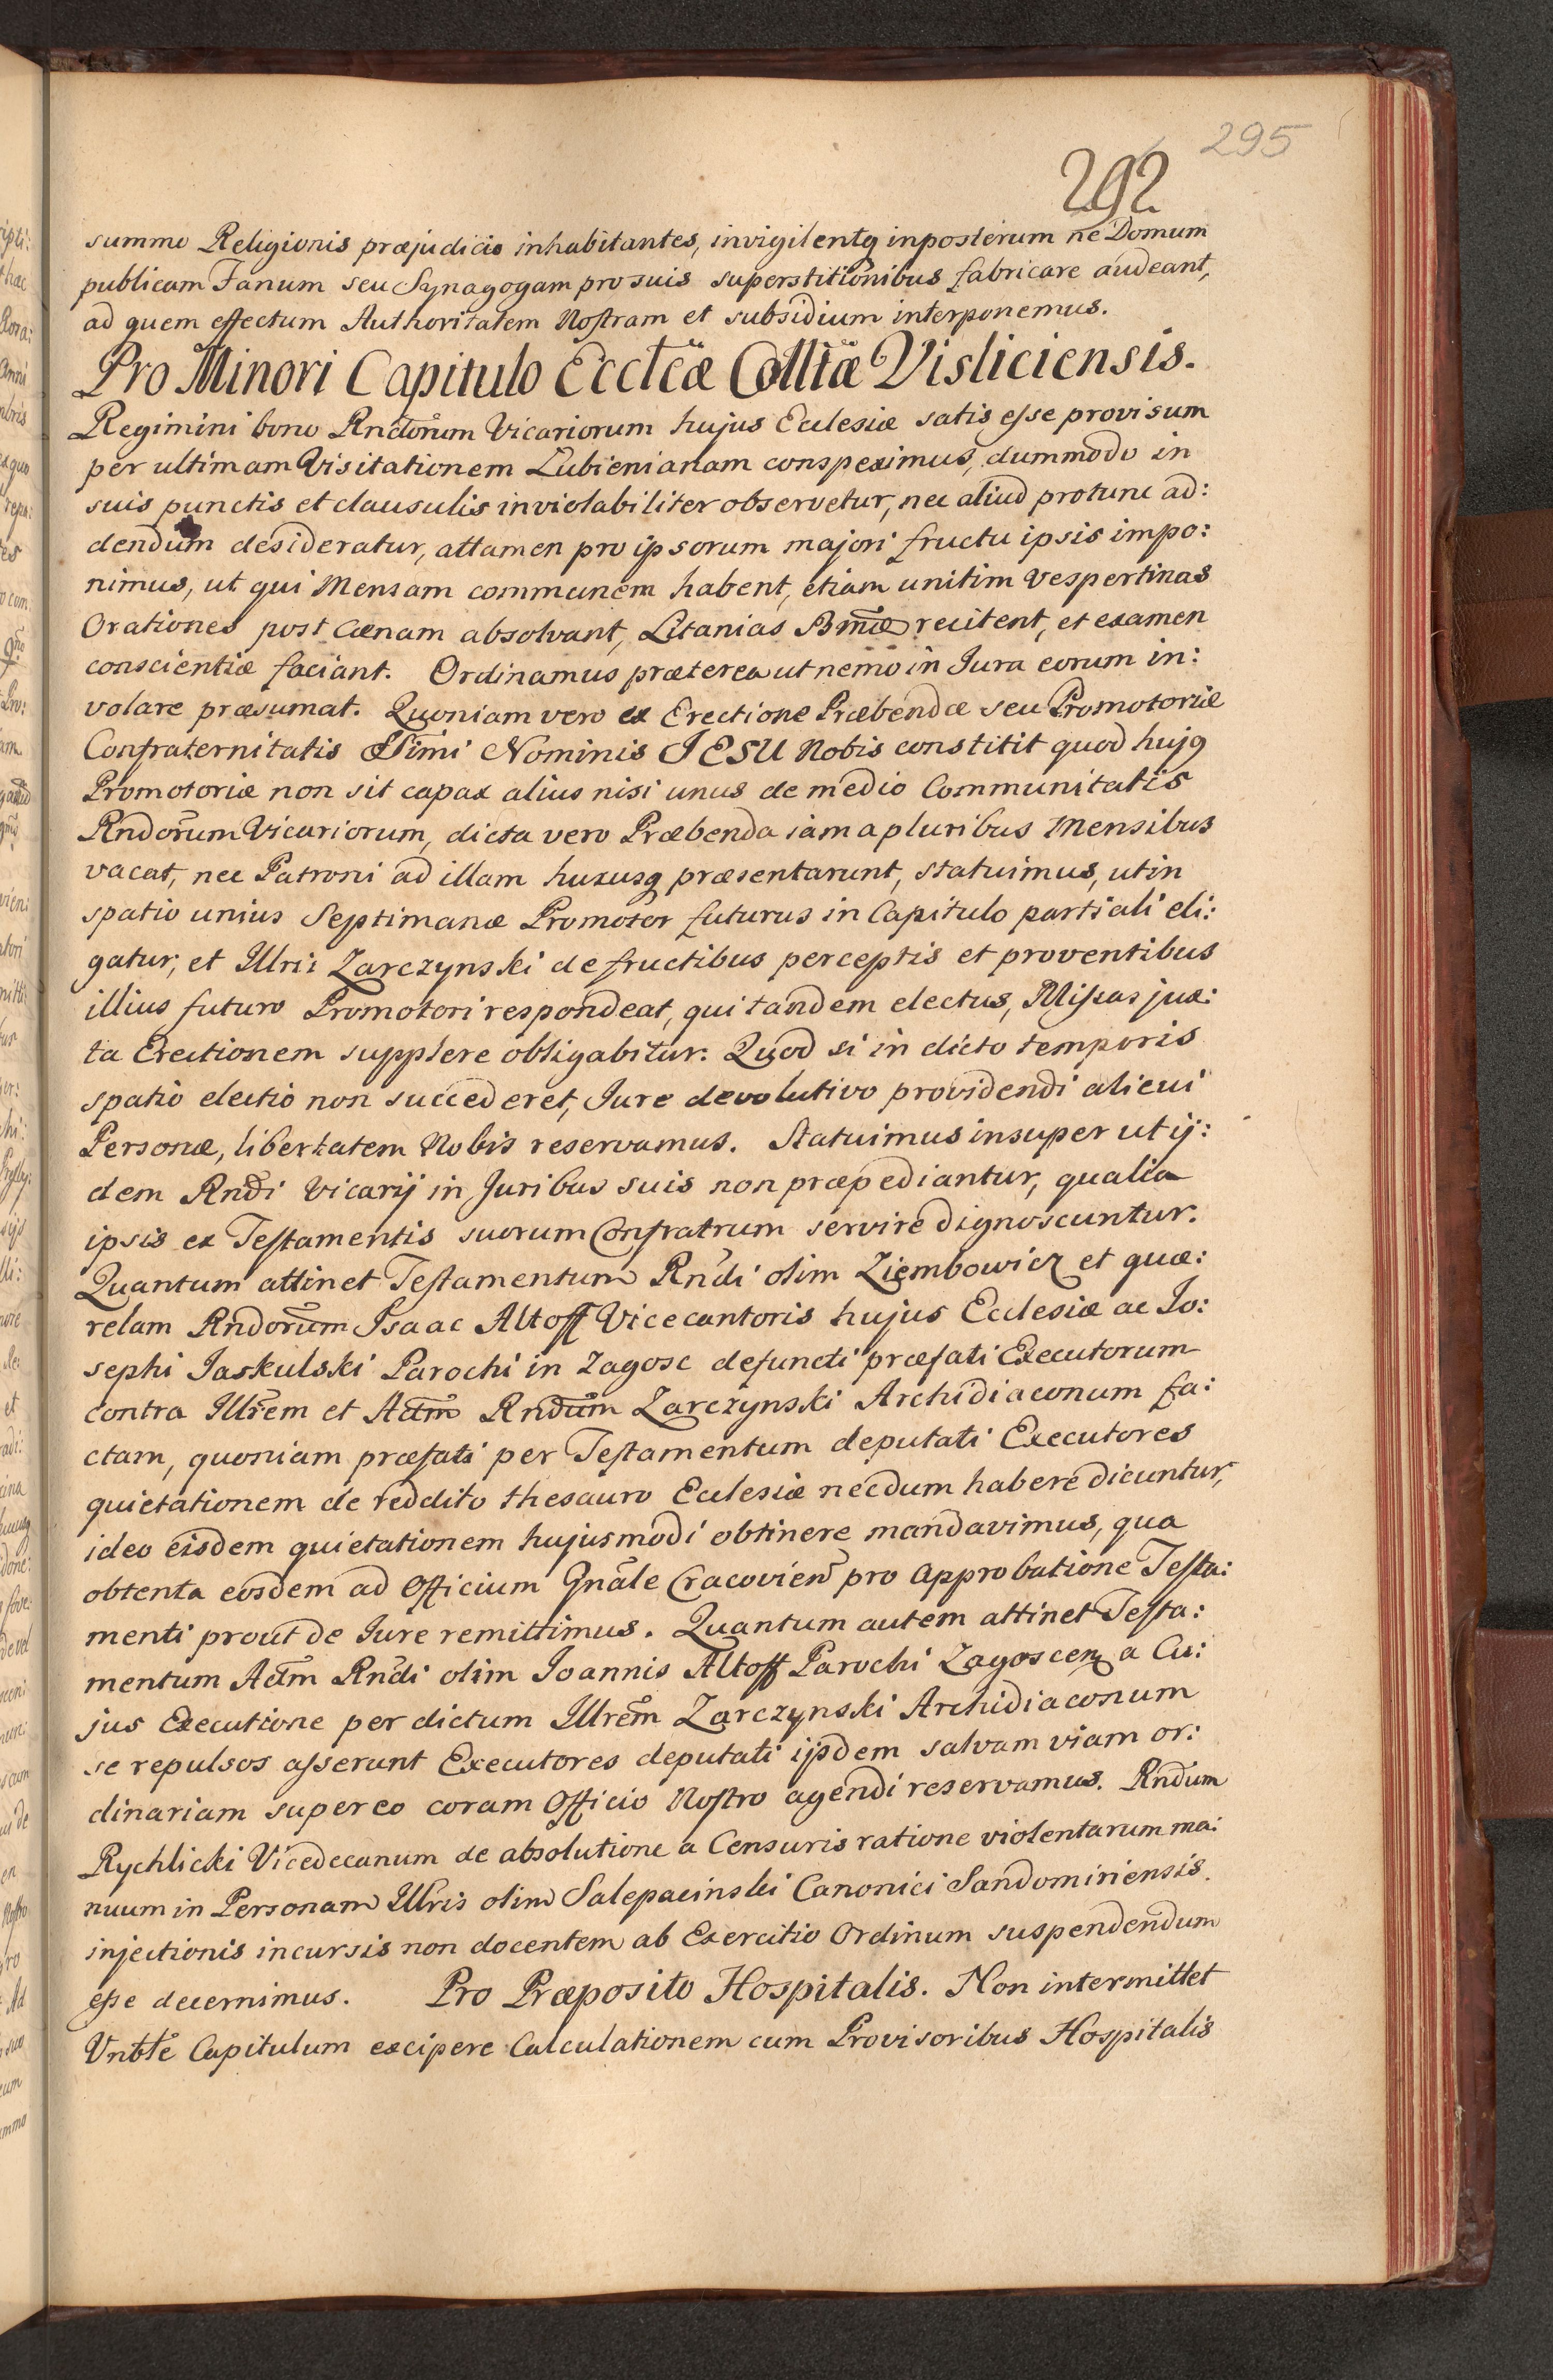 295
292
summo Religionis præjudicio inhabitantes, invigilentq inposterum ne Domum
publicam Fanum seu Synagogam pro suis superstitionibus fabricare audeant,
ad quem effectum Authoritatem Nostram et subsidium interponemus.
Pro Minori Capitulo Eccleæ Colltæ Visliciensis.
Regimini bono Rndorum Vicariorum hujus Ecclesiæ satis esse provisum
per ultimam Visitationem Lubienianam conspeximus, dummodo in
suis punctis et clausulis inviolabiliter observetur, nec aliud protunc ad:
dendum desideratur, attamen pro ipsorum majori fructu ipsis impo:
nimus, ut qui Mensam communem habent, etiam unitim Vespertinas
Orationes post Cœnam absolvant, Litanias Bmæ recitent, et examen
conscientiæ faciant. Ordinamus præterea ut nemo in Jura eorum in:
volare præsumat. Quoniam vero ex Erectione Præbendæ seu Promotoriæ
Confraternitatis SSimi Nominis JESU Nobis constitit quod hujq
Promotoriæ non sit capax alius nisi unus de medio Communitatis
Rndorum Vicariorum, dicta vero Præbenda iam a pluribus Mensibus
vacat, nec Patroni ad illam hucusq præsentarunt, statuimus, ut in
spatio unius Septimanæ Promotor futurus in Capitulo partiali eli:
gatur, et Illris Zarczynski de fructibus perceptis et proventibus
illius futuro Promotori respondeat, qui tandem electus, Missas jux:
ta Erectionem supplere obligabitur. Quod si in dicto temporis
spatio electio non succederet, Jure devolutivo providendi alicui
Personæ, libertatem Nobis reservamus. Statuimus insuper ut ij:
dem Rndi Vicarij in Juribus suis non præpediantur, qualia
ipsis ex Testamentis suorum Confratrum servire dignoscuntur.
Quantum attinet Testamentum Rndi olim Ziembowicz et quæ:
relam Rndorum Isaac Altoff Vicecantoris hujus Ecclesiæ ac Jo:
sephi Jaskulski Parochi in Zagosc defuncti præfati Executorum
contra Illrem et Adm Rndum Zarczynski Archidiaconum fa:
ctam, quoniam præfati per Testamentum deputati Executores
quietationem de reddito thesauro Ecclesiæ necdum habere dicuntur,
ideo eisdem quietationem hujusmodi obtinere mandavimus, qua
obtenta eosdem ad Officium Gnale Cracovien pro Approbatione Testa:
menti prout de Jure remittimus. Quantum autem attinet Testa:
mentum Adm Rndi olim Joannis Altoff Parochi Zagoscen a Cu:
jus Executione per dictum Illrem Zarczynski Archidiaconum
se repulsos asserunt Executores deputati ijsdem salvam viam or:
dinariam super eo coram Officio Nostro agendi reservamus. Rndum
Rychlicki Vicedecanum de absolutione a Censuris ratione violentarum ma:
nuum in Personam Illris olim Salepacinski Canonici Sandomiriensis
injectionis incursis non docentem ab Exercitio Ordinum suspendendum
esse decernimus. Pro Præposito Hospitalis. Non intermittet
Vnble Capitulum excipere Calculationem cum Provisoribus Hospitalis